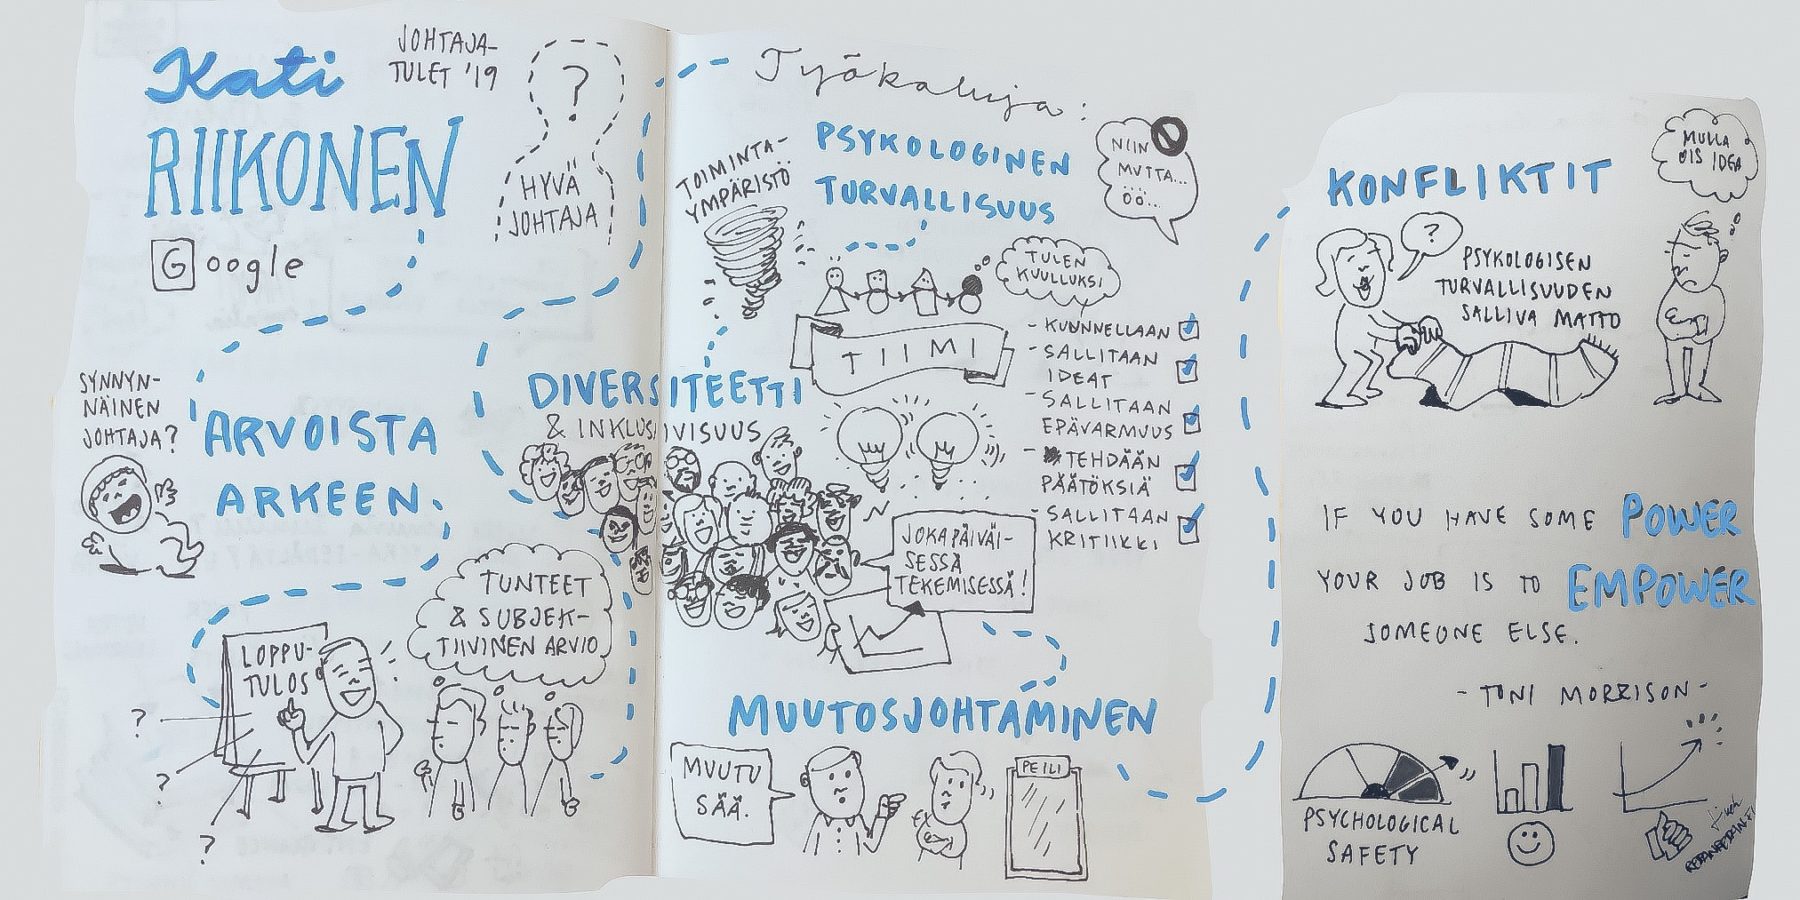 Kati
RIIKONEN
Google
JOHTAJA-
TULET '19
?
HYVÄ
JOHTAJA
SYNNYN-
NÄINEN
JOHTAJA?
ARVOISTA
ARKEEN.
LOPPU-
TULOS
?
?
?
TUNTEET
& SUBJEK-
TIIVINEN ARVIO
Työkaluja:
TOIMINTA-
YMPÄRISTÖ
DIVERSITEETTI
& INKLUSIIVISUUS
JOKAPÄIVÄI-
SESSÄ
TEKEMISESSÄ!
PSYKOLOGINEN
TURVALLISUUS
NIIN
MUTTA...
ÖÖ...
TULEN
KUULLUKSI
TIIMI
- KUUNNELLAAN
- SALLITAAN
IDEAT
- SALLITAAN
EPÄVARMUUS
- TEHDÄÄN
PÄÄTÖKSIÄ
- SALLITAAN
KRITIIKKI
MUUTOSJOHTAMINEN
MUUTU
SÄÄ.
PEILI
KONFLIKTIT
MULLA
OIS IDEA
?
PSYKOLOGISEN
TURVALLISUUDEN
SALLIVA MATTO
IF YOU HAVE SOME POWER
YOUR JOB IS TO EMPOWER
SOMEONE ELSE.
- TONI MORRISON -
PSYCHOLOGICAL
SAFETY